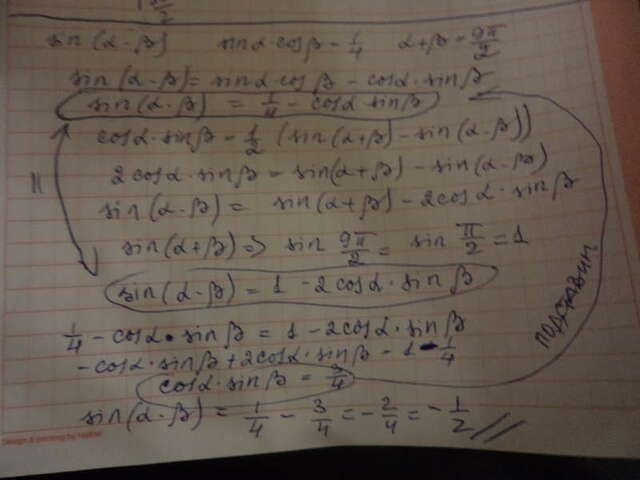 π/2
sin(α-β) sinα cosβ = 1/4 α+β = 9π/2
sin(α-β) = sinα cosβ - cosα·sinβ
sin(α-β) = 1/4 - cosα sinβ
cosα·sinβ = 1/2 (sin(α+β) - sin(α-β))
2cosα·sinβ = sin(α+β) - sin(α-β)
sin(α-β) = sin(α+β) - 2cosα·sinβ
sin(α+β) => sin 9π/2 = sin π/2 = 1
sin(α-β) = 1 - 2cosα·sinβ
1/4 - cosα·sinβ = 1 - 2cosα·sinβ
-cosα·sinβ + 2cosα·sinβ = 1 - 1/4
cosα·sinβ = 3/4
sin(α-β) = 1/4 - 3/4 = -2/4 = -1/2 //
подставим
=
Design & printing by